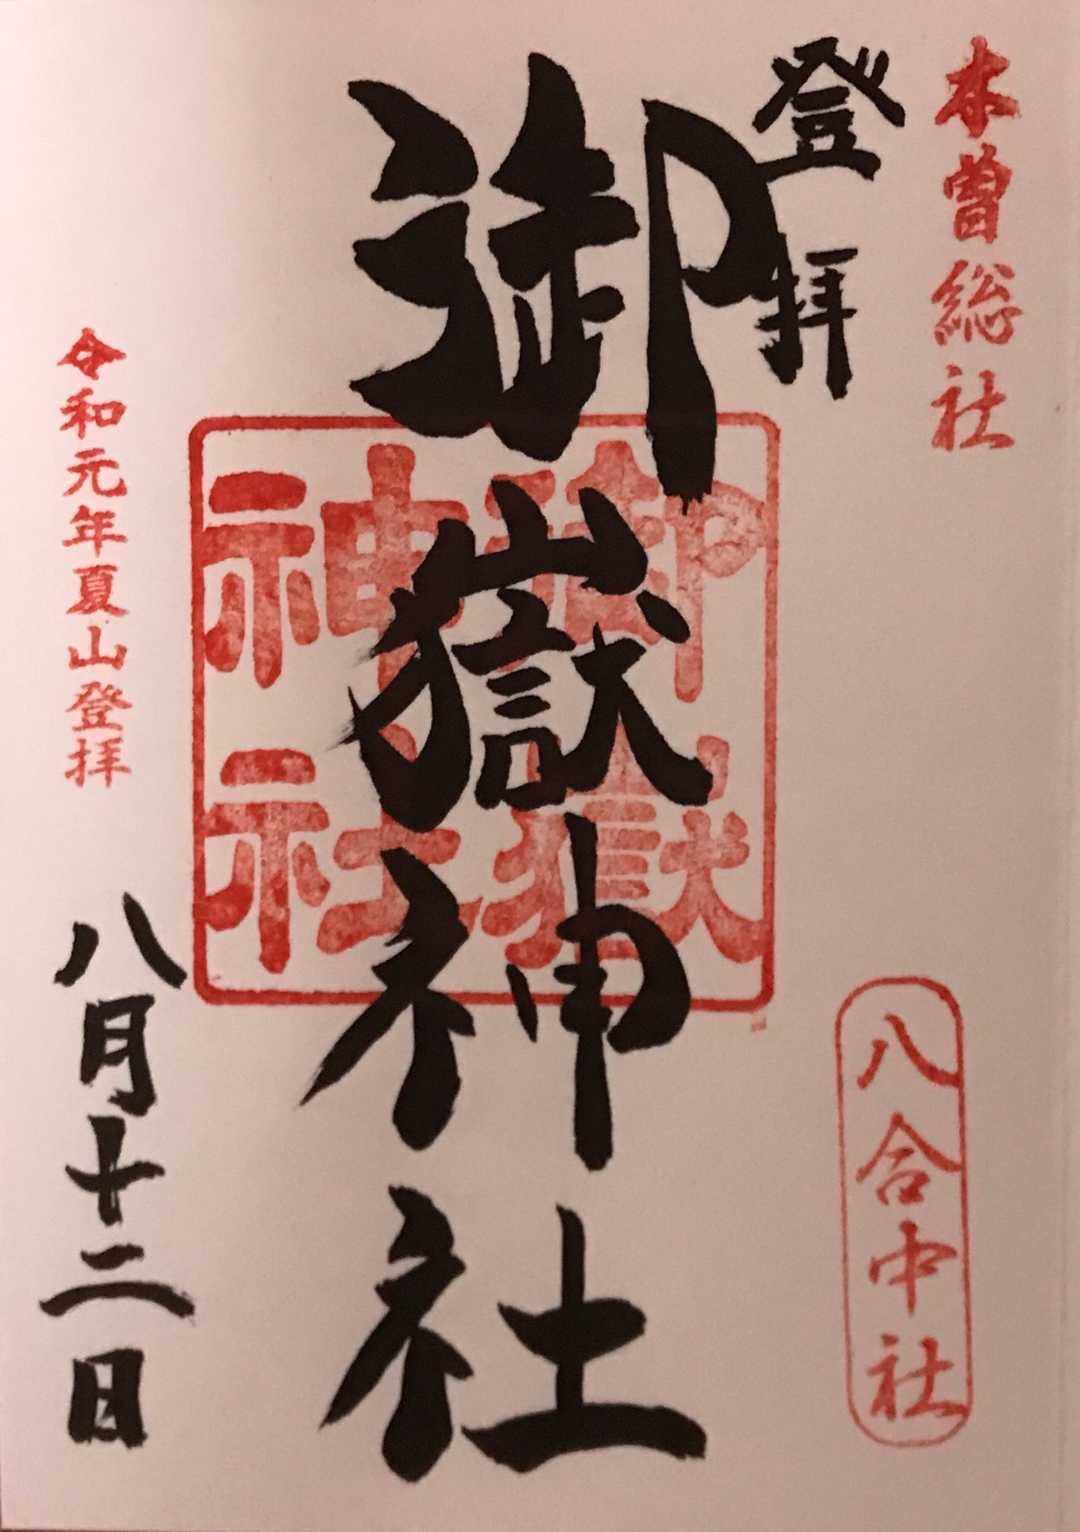 木曽総社
登拝
八合中社
御嶽神社
御嶽
神社
令和元年夏山登拝
八月十二日